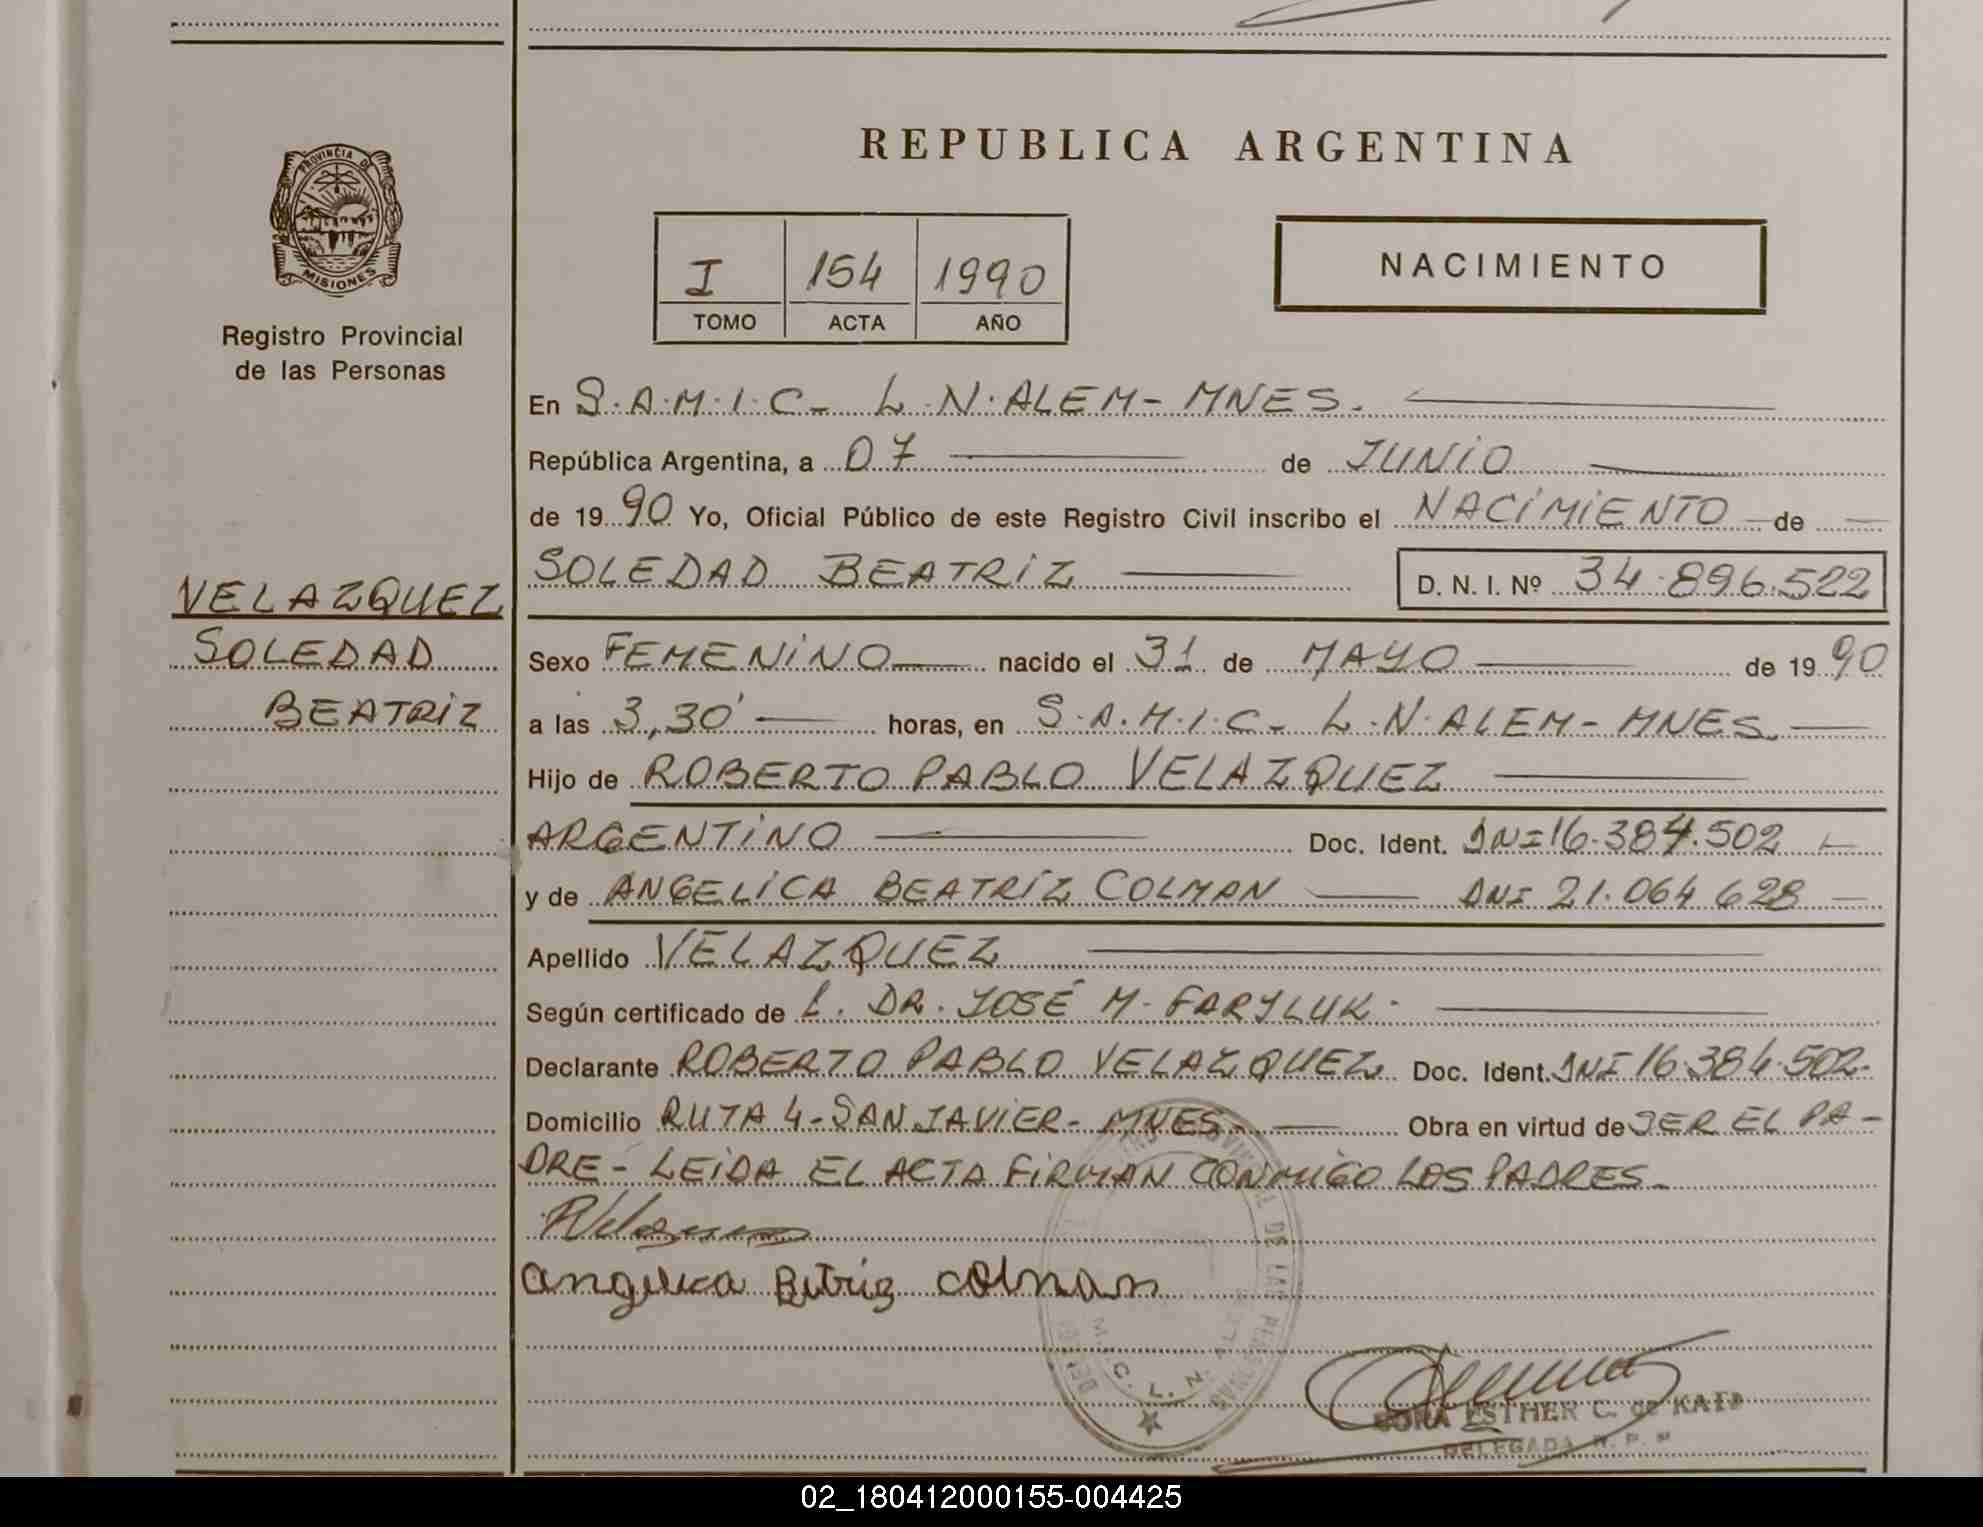 PROVINCIA DE
MISIONES
Registro Provincial
de las Personas
VELAZQUEZ
SOLEDAD
BEATRIZ
REPUBLICA ARGENTINA
I 154 1990
TOMO ACTA AÑO
NACIMIENTO
En S.A.M.I.C- L.N.ALEM- MNES.
República Argentina, a 07 de JUNIO
de 1990 Yo, Oficial Público de este Registro Civil inscribo el NACIMIENTO de
SOLEDAD BEATRIZ D. N. I. Nº 34.896.522
Sexo FEMENINO nacido el 31 de MAYO de 1990
a las 3,30 horas, en S.A.M.I.C- L.N.ALEM- MNES.
Hijo de ROBERTO PABLO VELAZQUEZ
ARGENTINO Doc. Ident. DNI 16.384.502
y de ANGELICA BEATRIZ COLMAN DNI 21.064 628
Apellido VELAZQUEZ
Según certificado de L. DR. JOSÉ M. FARYLUK.
Declarante ROBERTO PABLO VELAZQUEZ Doc. Ident. DNI 16.384.502-
Domicilio RUTA 4-SAN JAVIER- MNES- Obra en virtud de SER EL PA-
DRE- LEIDA EL ACTA FIRMAN CONMIGO LOS PADRES-
Angelica Betriz Colman
DE LAS PERSONAS
M.I.C. L. N. ALEM
ESTHER C. de
DELEGADA R. P. P.
02_180412000155-004425